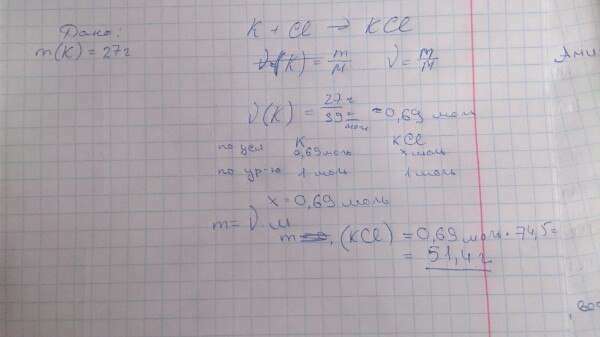 Дано:
m(K) = 27г
K + Cl → KCl
ν(K) = m/M ν = m/M
ν(K) = 27г / 39 г/моль = 0,69 моль
по усл K 0,69 моль KCl x моль
по ур-ю 1 моль 1 моль
x = 0,69 моль
m = ν · M
m (KCl) = 0,69 моль · 74,5 =
= 51,4 г